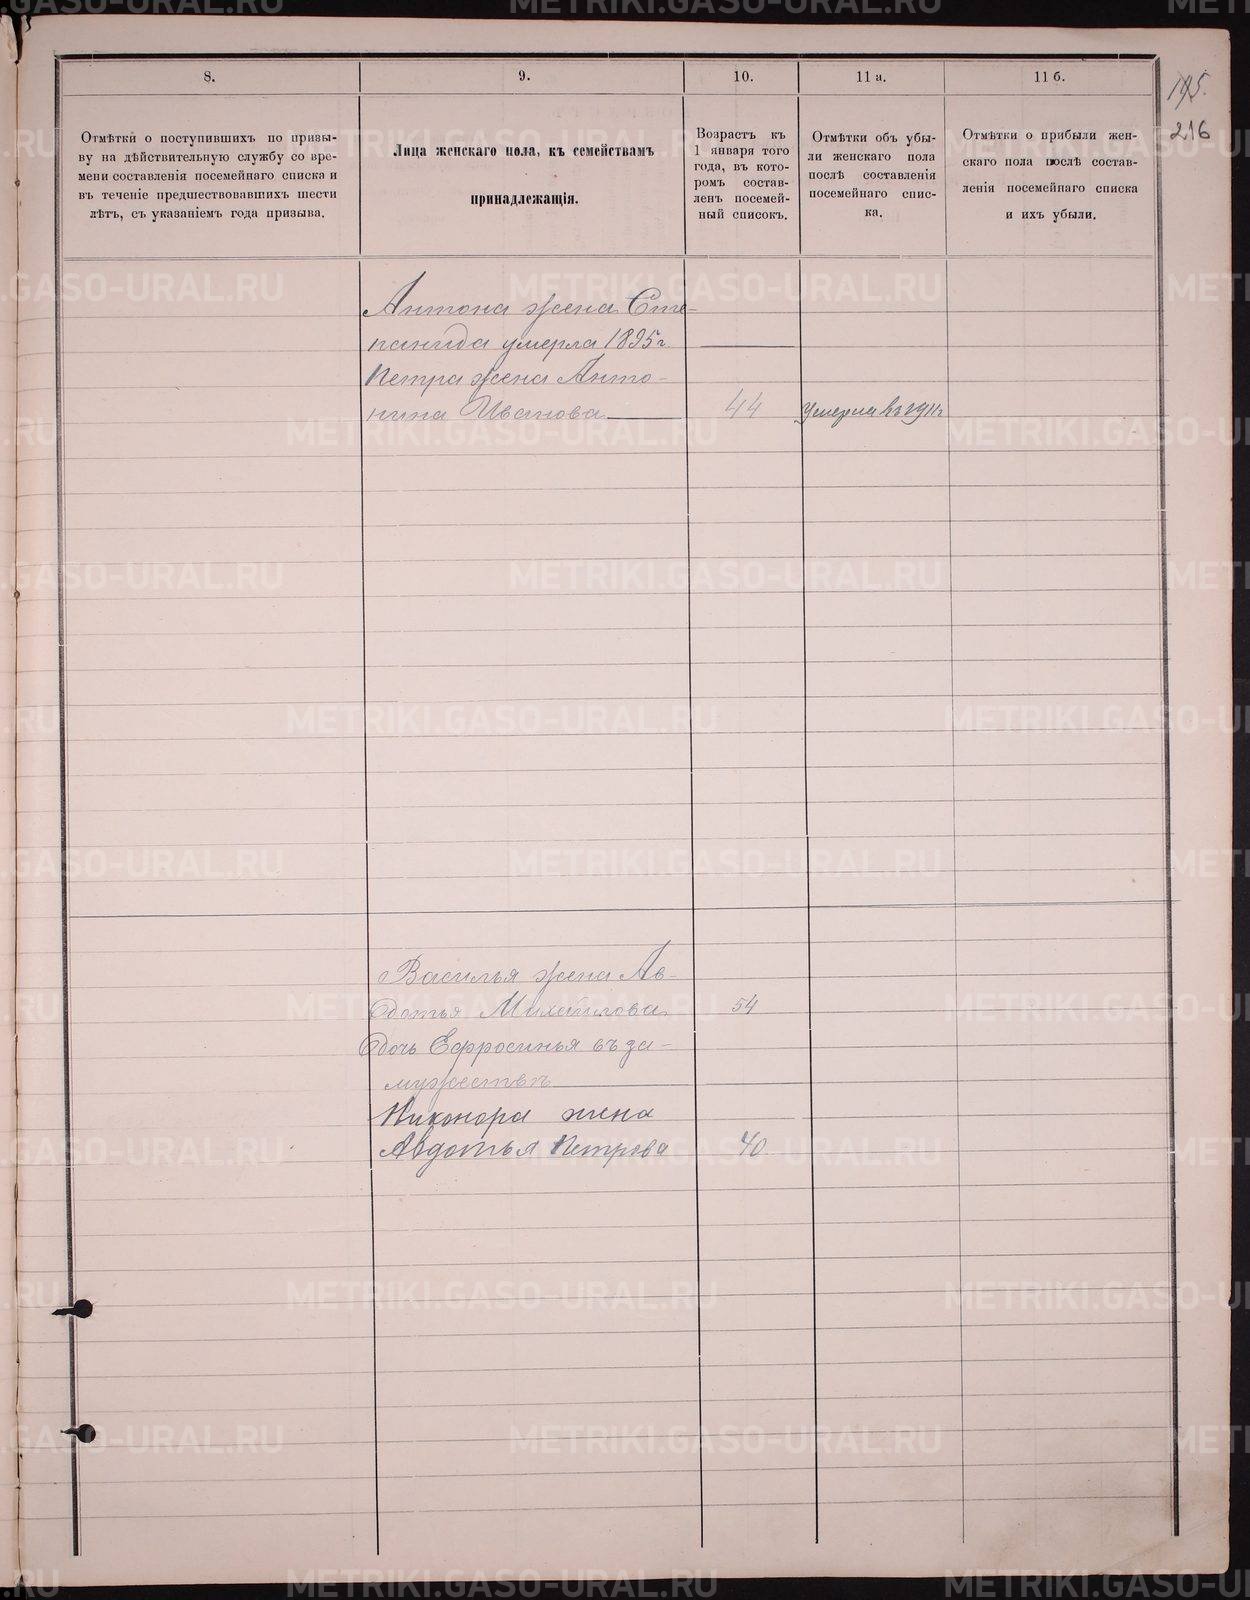 8.
9.
10.
11 а.
11 б.
216
Отмѣтки о поступившихъ по призы-
ву на дѣйствительную службу со вре-
мени составленія посемейнаго списка и
въ теченіе предшествовавшихъ шести
лѣтъ, съ указаніемъ года призыва.
Лица женскаго пола, къ семействамъ
принадлежащія.
Возрастъ къ
1 января того
года, въ кото-
ромъ состав-
ленъ посемей-
ный списокъ.
Отмѣтки объ убы-
ли женскаго пола
послѣ составленія
посемейнаго спис-
ка.
Отмѣтки о прибыли жен-
скаго пола послѣ состав-
ленія посемейнаго списка
и ихъ убыли.
Антона жена Сте-
панида умерла 1895 г.
Петра жена Анто-
нина Иванова 44 умерла въ 1911 г
Василья жена Ав-
дотья Михайлова 54
дочь Ефросинья въ за-
мужествѣ
Никонора жена
Авдотья Петрова 40
METRIKI.GASO-URAL.RU